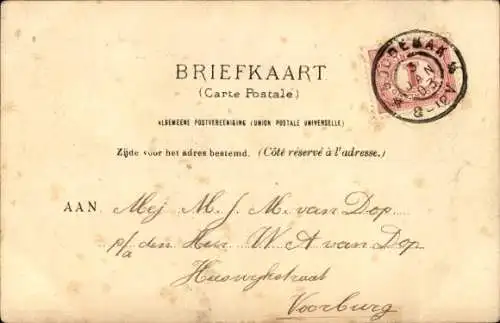 BODEMAK
3
JAN
03
8-12V
BRIEFKAART
(Carte Postale)
ALGEMEENE POSTVEREENIGING (UNION POSTALE UNIVERSELLE)
Zijde voor het adres bestemd. (Côté réservé à l'adresse.)
AAN Mej M. J. M. van Dop
p/a den Heer W A van Dop
Huiswijkstraat
Voorburg